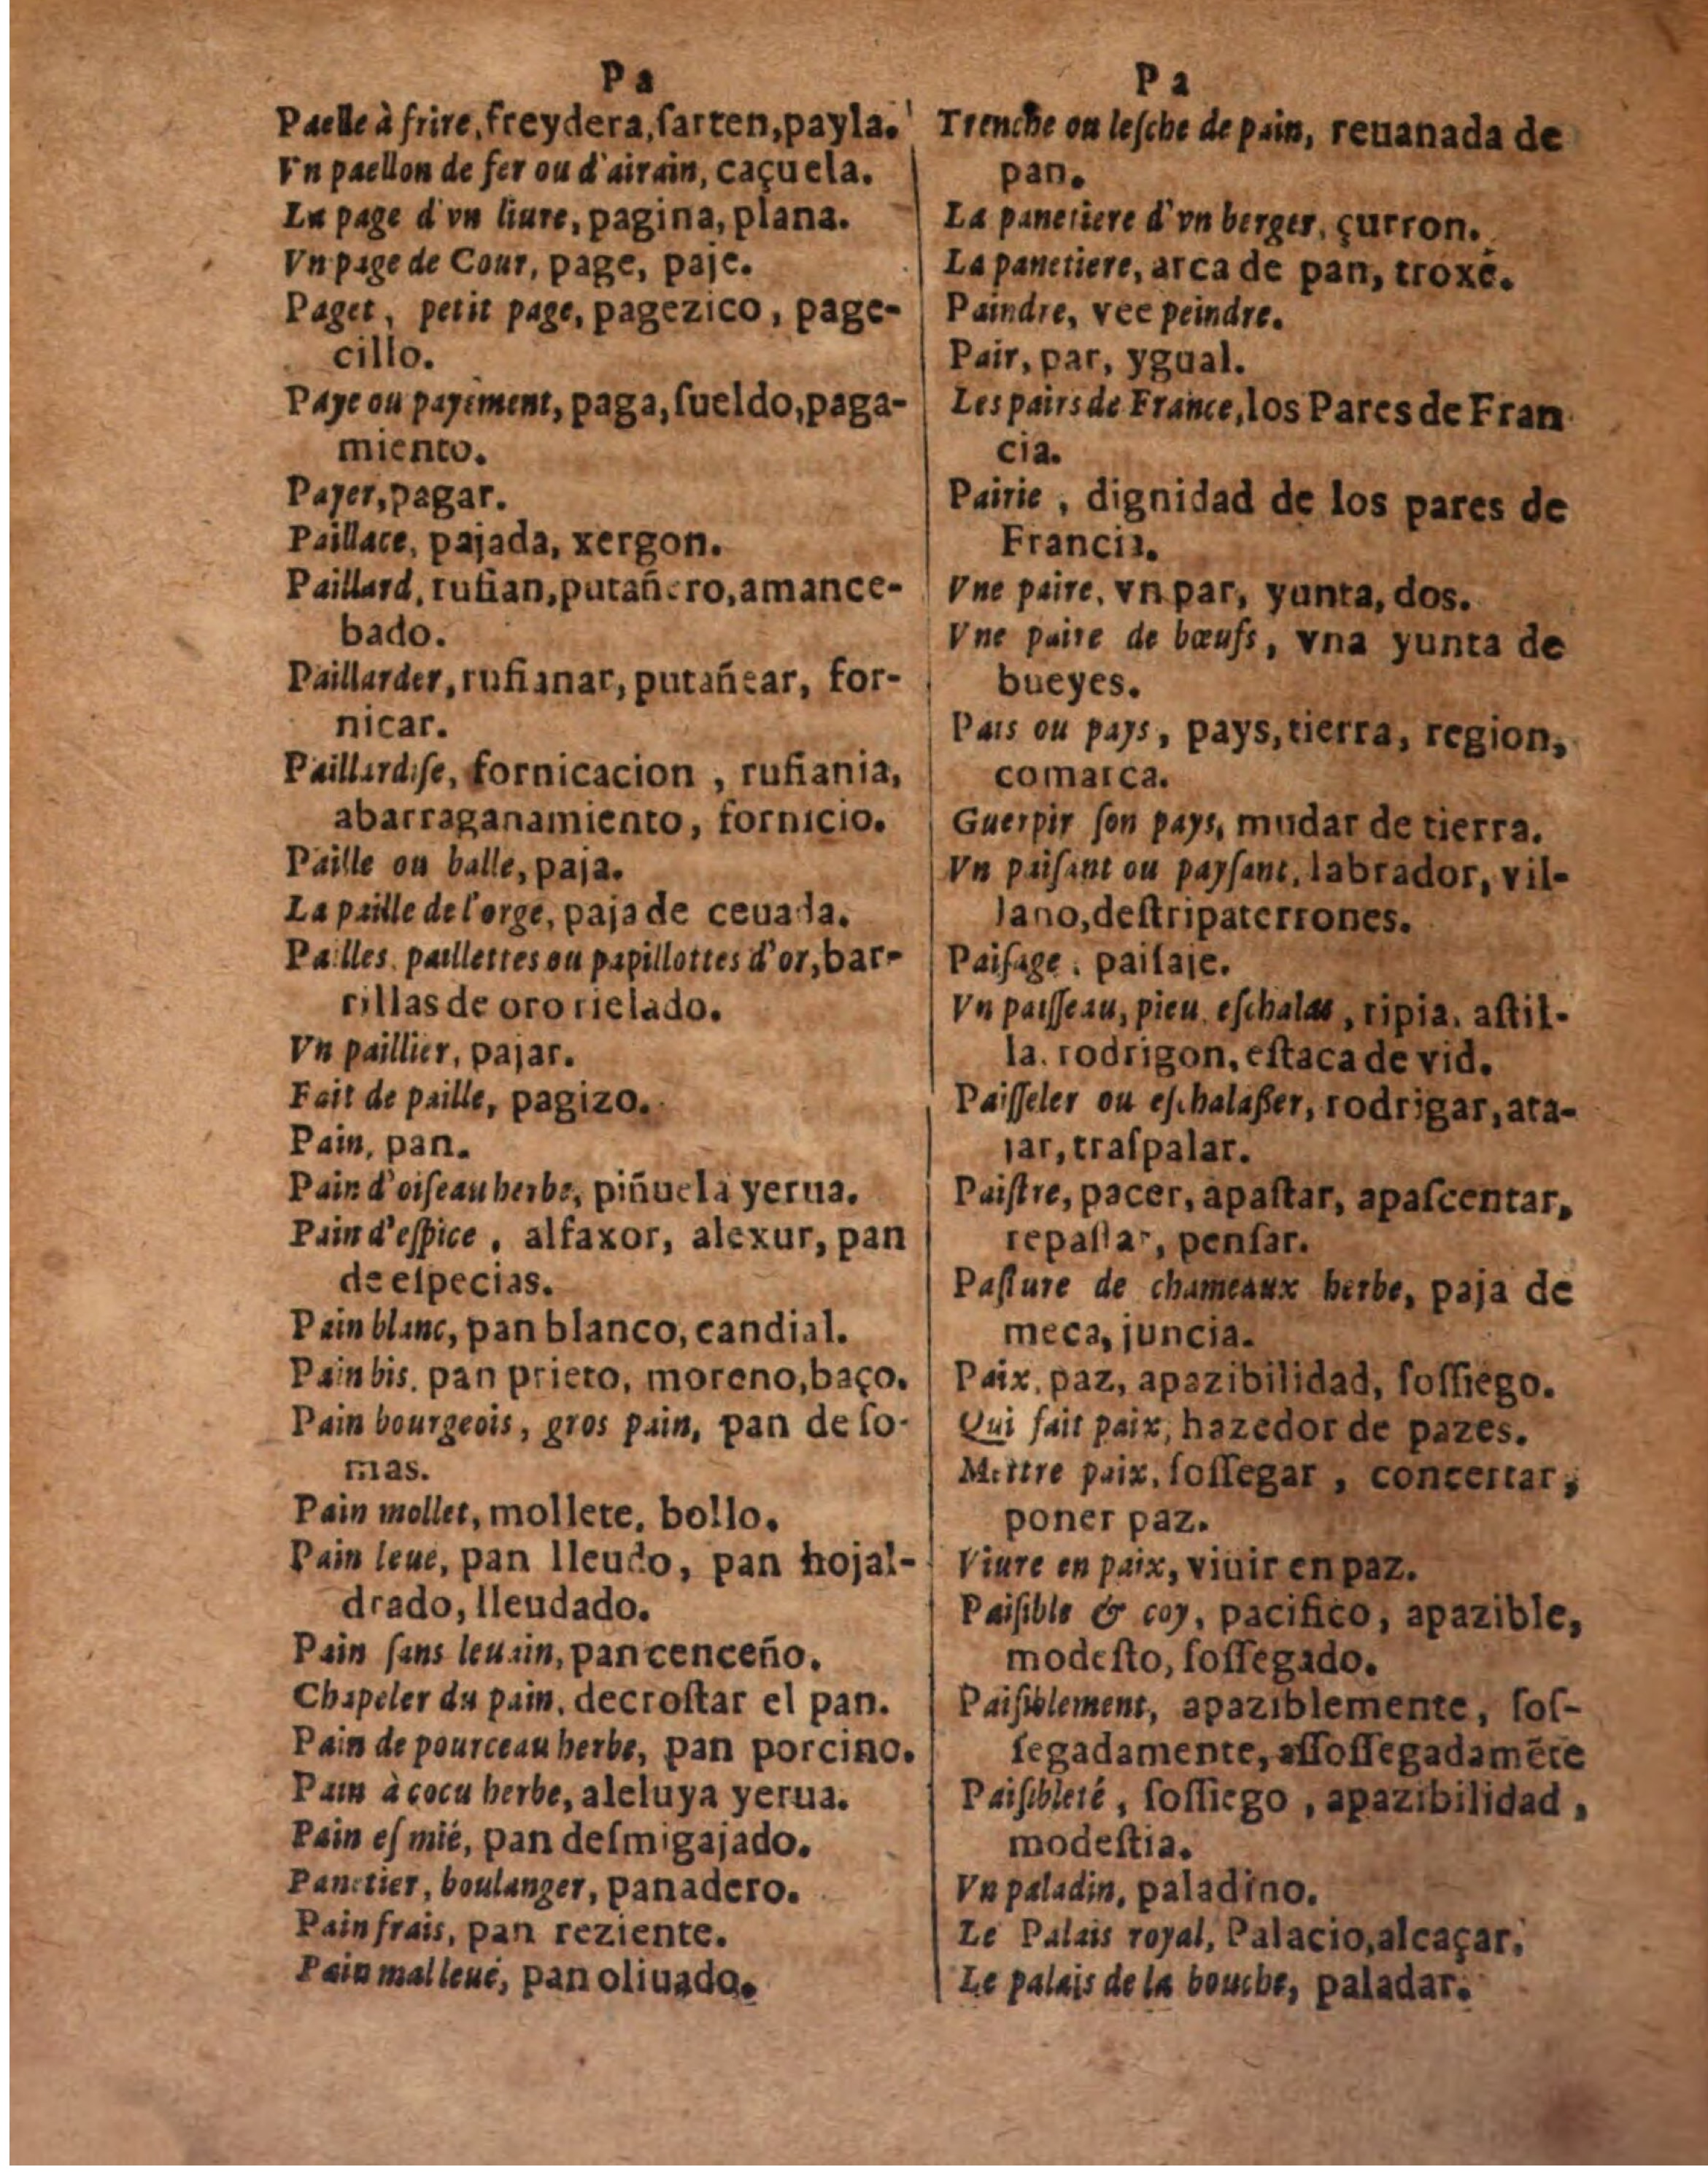 Pa
Paelle à frire, freydera, ſarten, payla.
Vn paellon de fer ou d'airain, caçuela.
La page d'vn liure, pagina, plana.
Vn page de Cour, page, paje.
Paget, petit page, pagezico, page-
cillo.
Paye ou payement, paga, ſueldo, paga-
miento.
Payer, pagar.
Paillace, pajada, xergon.
Paillard, rufian, putañero, amance-
bado.
Paillarder, rufianar, putañear, for-
nicar.
Paillardiſe, fornicacion, rufiania,
abarraganamiento, fornicio.
Paille ou balle, paja.
La paille de l'orge, paja de ceuada.
Pailles, paillettes ou papillottes d'or, bar-
rillas de oro rielado.
Vn paillier, pajar.
Fait de paille, pagizo.
Pain, pan.
Pain d'oiſeau herbe, piñuela yerua.
Pain d'eſpice, alfaxor, alexur, pan
de eſpecias.
Pain blanc, pan blanco, candial.
Pain bis, pan prieto, moreno, baço.
Pain bourgeois, gros pain, pan de ſo-
mas.
Pain mollet, mollete, bollo.
Pain leue, pan lleudo, pan hojal-
drado, lleudado.
Pain ſans leuain, pan cenceño.
Chapeler du pain, decroſtar el pan.
Pain de pourceau herbe, pan porcino.
Pain à cocu herbe, aleluya yerua.
Pain eſmié, pan deſmigajado.
Panetier, boulanger, panadero.
Pain frais, pan reziente.
Pain mal leué, pan oliuado.
Pa
Trenche ou leſche de pain, reuanada de
pan.
La panetiere d'vn berger, çurron.
La panetiere, arca de pan, troxe.
Paindre, vee peindre.
Pair, par, ygual.
Les pairs de France, los Pares de Fran
cia.
Pairie, dignidad de los pares de
Francia.
Vne paire, vn par, yunta, dos.
Vne paire de bœufs, vna yunta de
bueyes.
Pais ou pays, pays, tierra, region,
comarca.
Guerpir ſon pays, mudar de tierra.
Vn paiſant ou payſant, labrador, vil-
lano, deſtripaterrones.
Paiſage, paiſaje.
Vn paiſſeau, pieu, eſchalas, ripia, aſtil-
la, rodrigon, eſtaca de vid.
Paiſſeler ou eſchalaßer, rodrigar, ata-
jar, traſpalar.
Paiſtre, pacer, apaſtar, apaſcentar,
repaſtar, penſar.
Paſture de chameaux herbe, paja de
meca, juncia.
Paix, paz, apazibilidad, ſoſſiego.
Qui fait paix, hazedor de pazes.
Mettre paix, ſoſſegar, concertar,
poner paz.
Viure en paix, viuir en paz.
Paiſible & coy, pacifico, apazible,
modeſto, ſoſſegado.
Paiſiblement, apaziblemente, ſoſ-
ſegadamente, aſſoſſegadamẽte
Paiſibleté, ſoſſiego, apazibilidad,
modeſtia.
Vn paladin, paladino.
Le Palais royal, Palacio, alcaçar.
Le palais de la bouche, paladar.